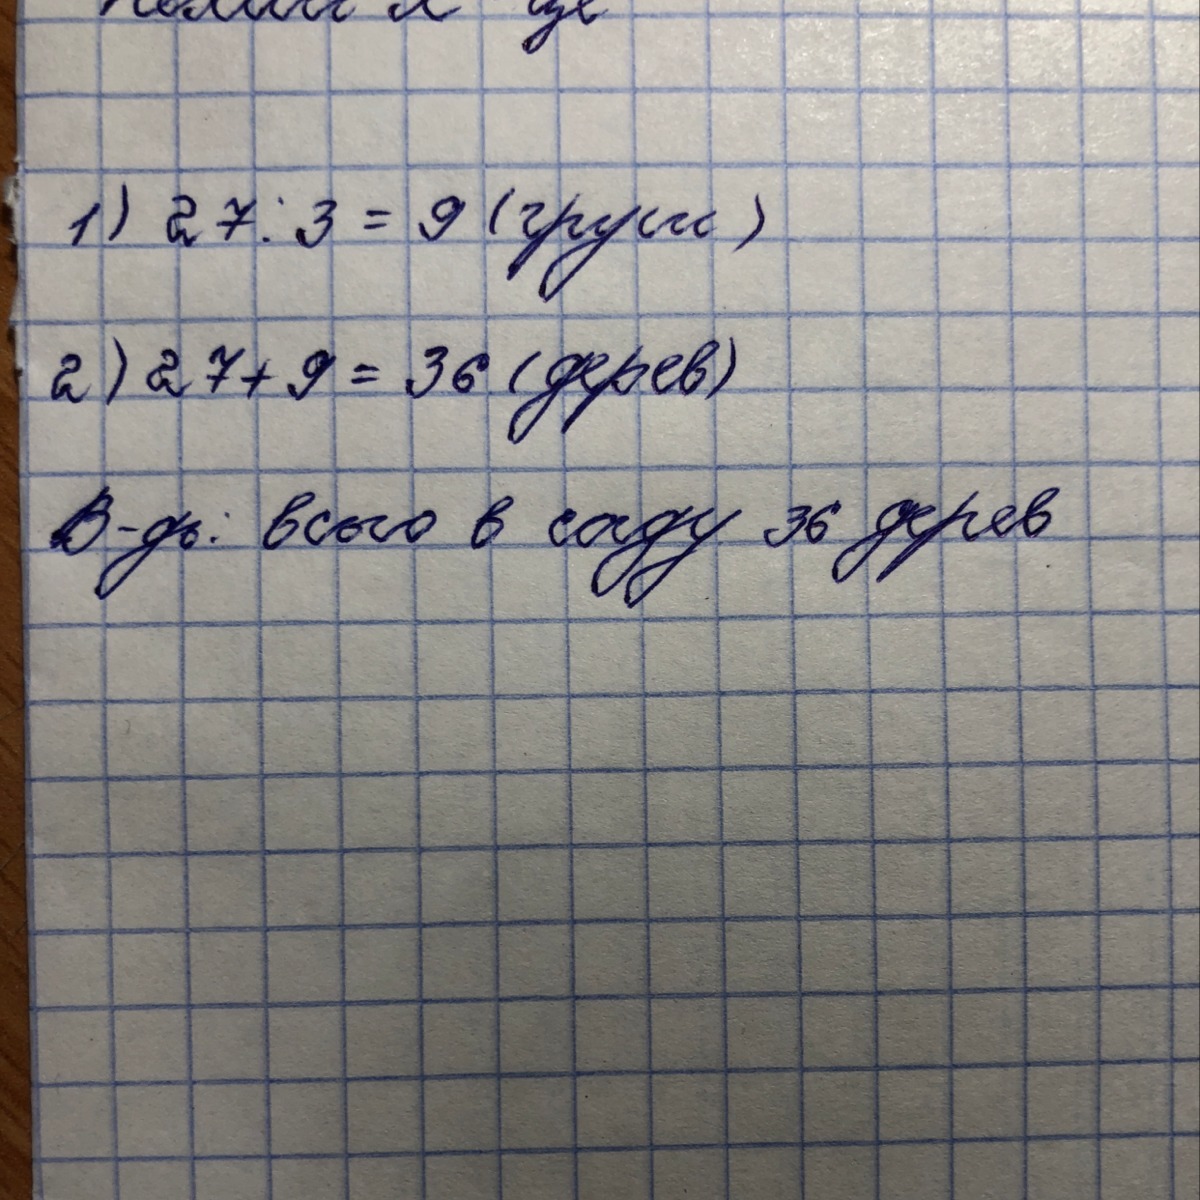 1) 27 : 3 = 9 (груш)
2) 27 + 9 = 36 (дерев)
В-дь: всього в саду 36 дерев